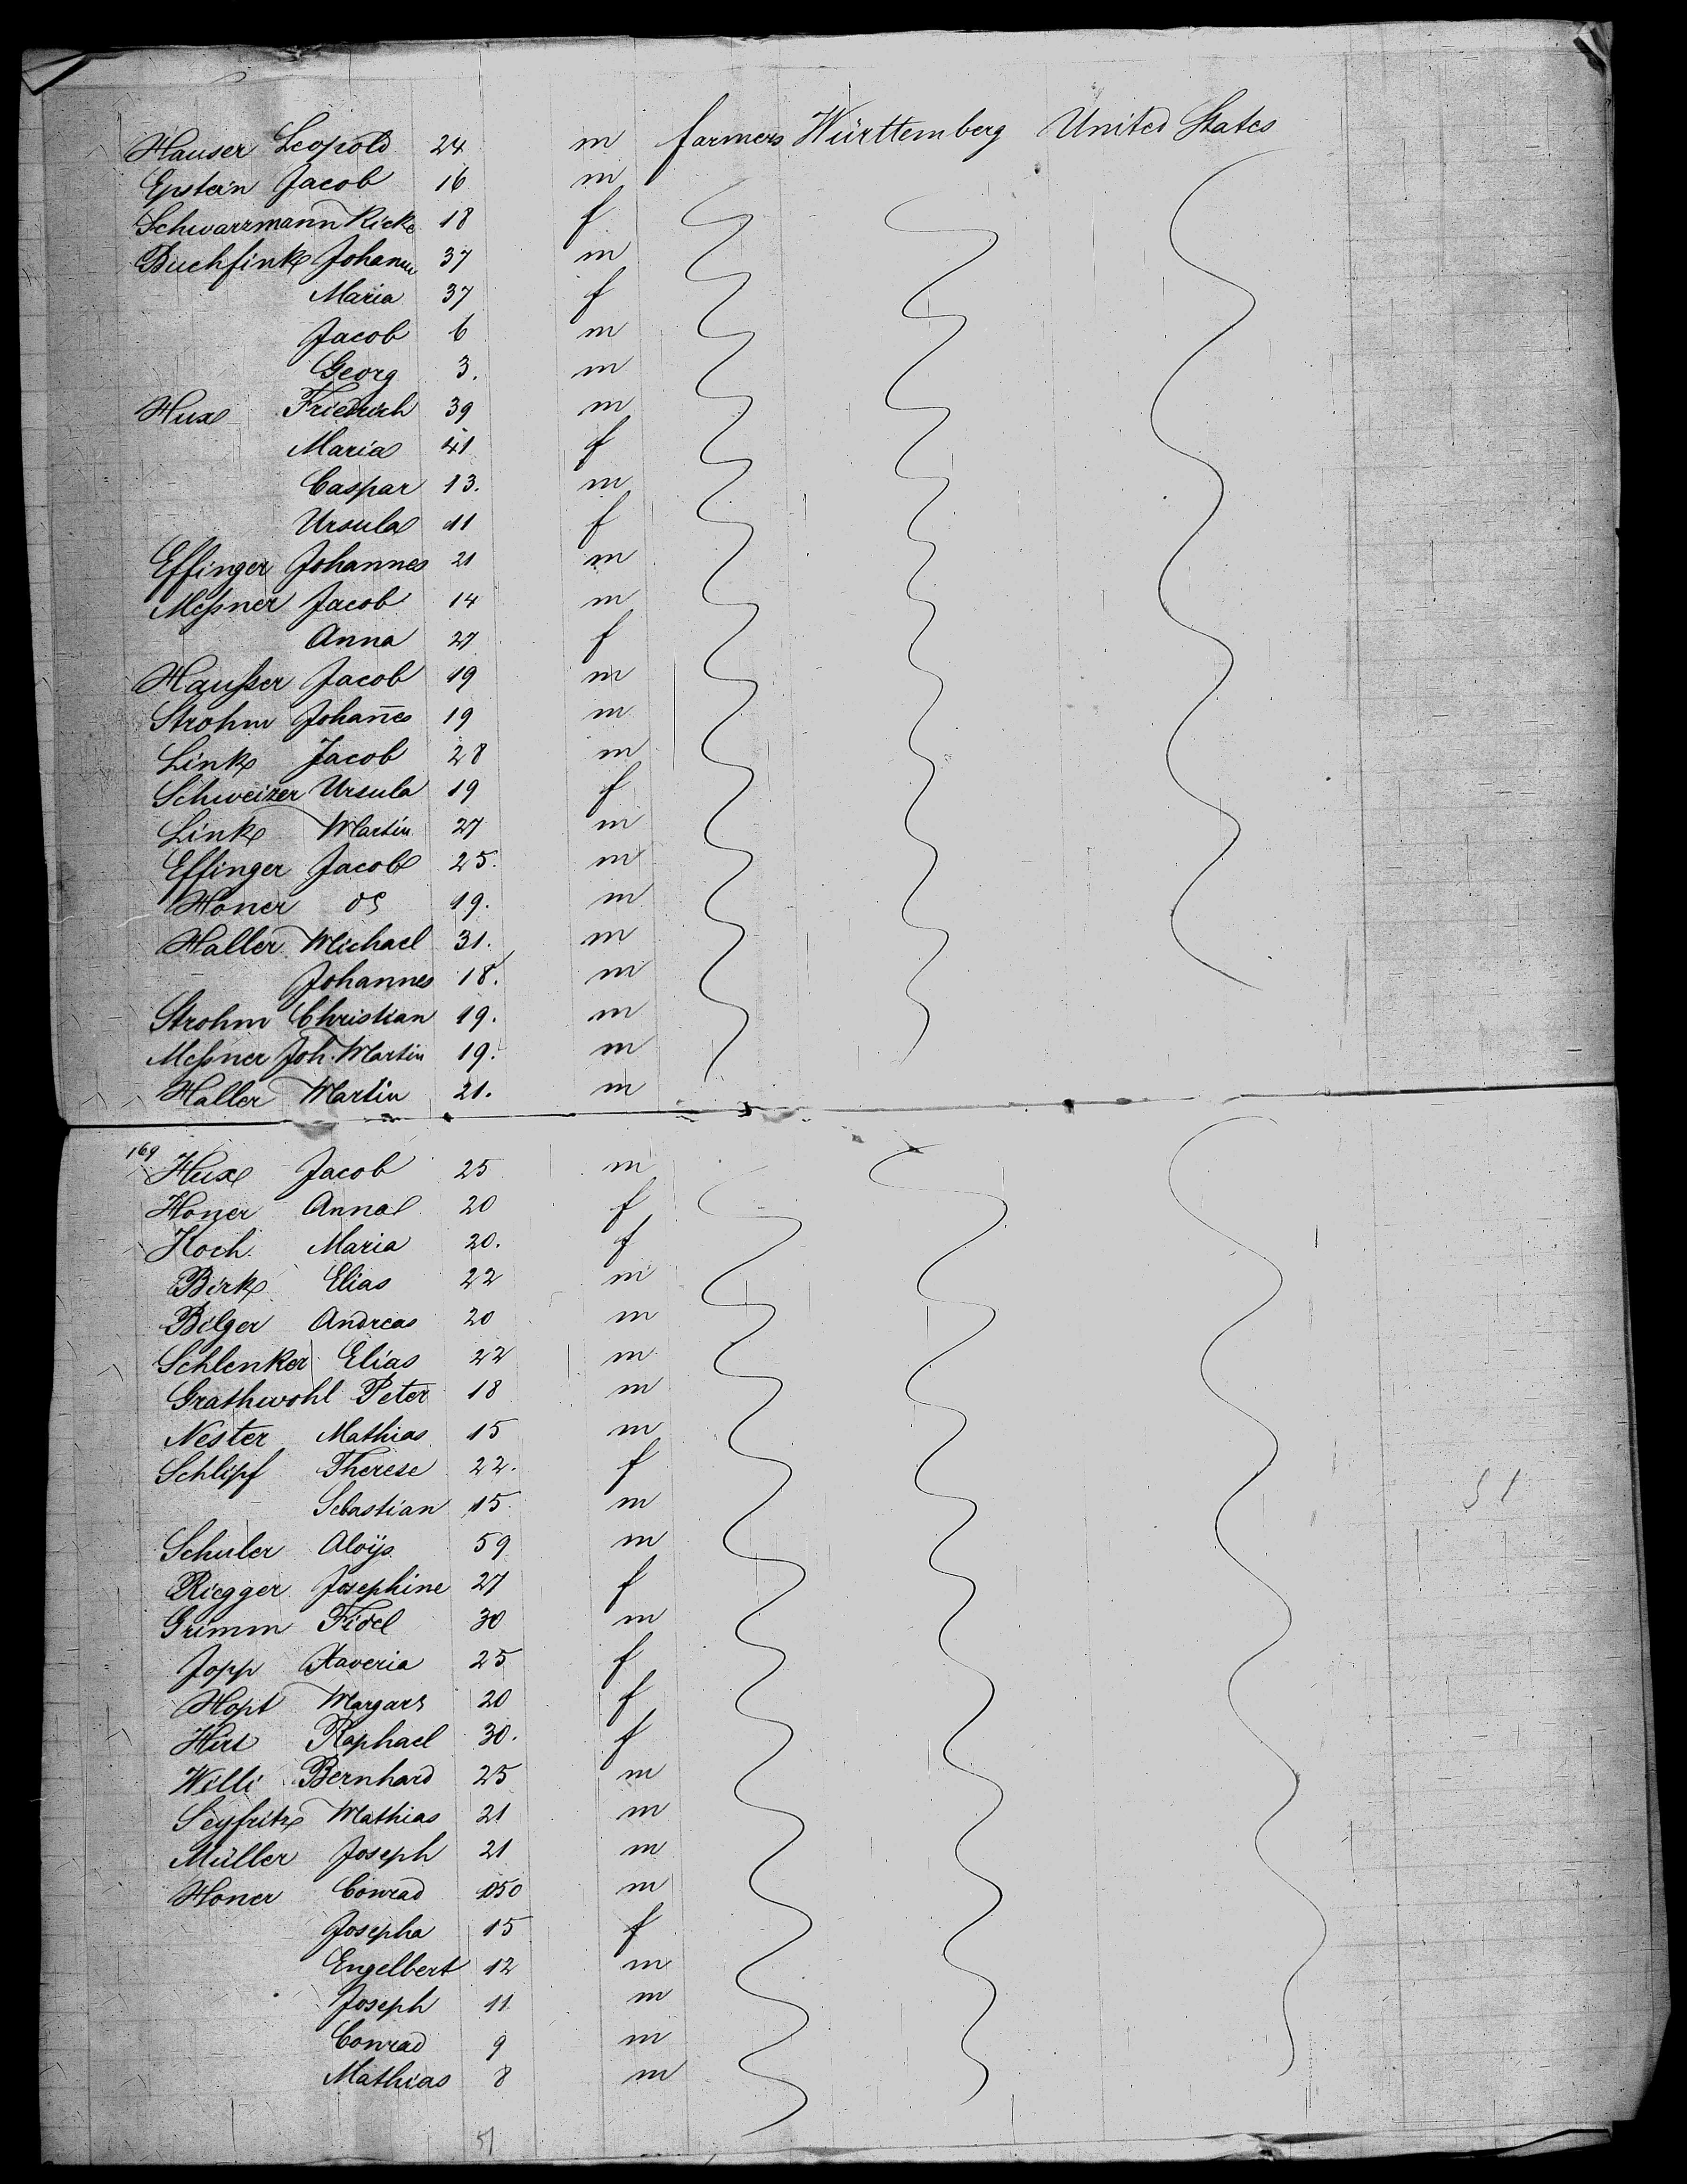 Hauser Leopold 24 m farmers Württemberg United States
Epstein Jacob 16 m
Schwarzmann Ricke 18 f
Buchfink Johann 37 m
Maria 37 f
Jacob 6 m
Georg 3. m
Hux Friedrich 39 m
Maria 41 f
Caspar 13. m
Ursula 11 f
Effinger Johannes 21 m
Meßner Jacob 14 m
Anna 27 f
Haußer Jacob 19 m
Strohm Johan̄es 19 m
Link Jacob 28 m
Schweizer Ursula 19 f
Link Martin 27 m
Effinger Jacob 25. m
Honer do 19. m
Haller Michael 31. m
Johannes 18. m
Strohm Christian 19. m
Meßner Joh. Martin 19. m
Haller Martin 21. m
169 Hux Jacob 25 m
Honer Anna 20 f
Koch Maria 20. f
Birk Elias 22 m
Bilger Andreas 20 m
Schlenker Elias 22 m
Grathwohl Peter 18 m
Nester Mathias 15 m
Schlipf Therese 22. f
Sebastian 15. m
51
Schuler Aloÿs 59 m
Riegger Josephine 27 f
Grimm Fidel 30 m
Jopp Xaveria 25 f
Hopt Margar 20 f
Hirt Raphael 30. f
Willi Bernhard 25 m
Seyfritz Mathias 21 m
Müller Joseph 21 m
Honer Conrad 50 m
Josepha 15 f
Engelbert 12 m
Joseph 11 m
Conrad 9 m
Mathias 8 m
51